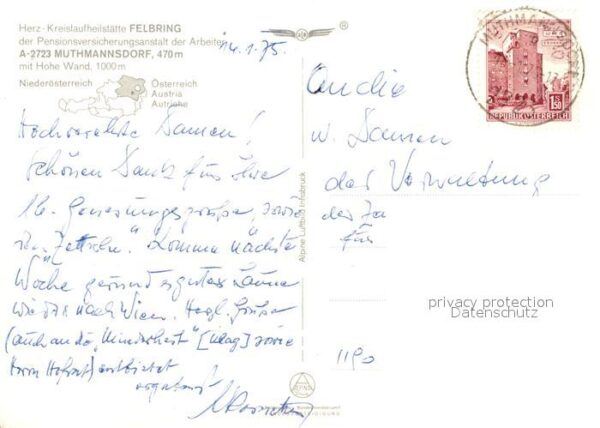 Herz-Kreislaufheilstätte FELBRING
der Pensionsversicherungsanstalt der Arbeiter
A-2723 MUTHMANNSDORF, 470 m
mit Hohe Wand, 1000 m
14.1.75
Niederösterreich
Österreich
Austria
Autriche
Hochverehrte Damen!
Schönen Dank für Ihre
lb. Genesungsgrüße, sowie
Komme nächste
Woche gesund gut Laune
wieder nach Wien. Herzl. Grüße
(auch an die "Minderheit" sowie
Herrn Hofrat) entbietet
An die
w. Damen
der Verwaltung
der
für
1190
MUTHMANNSDORF
1.50
REPUBLIK ÖSTERREICH
Alpine Luftbild Innsbruck
privacy protection
Datenschutz